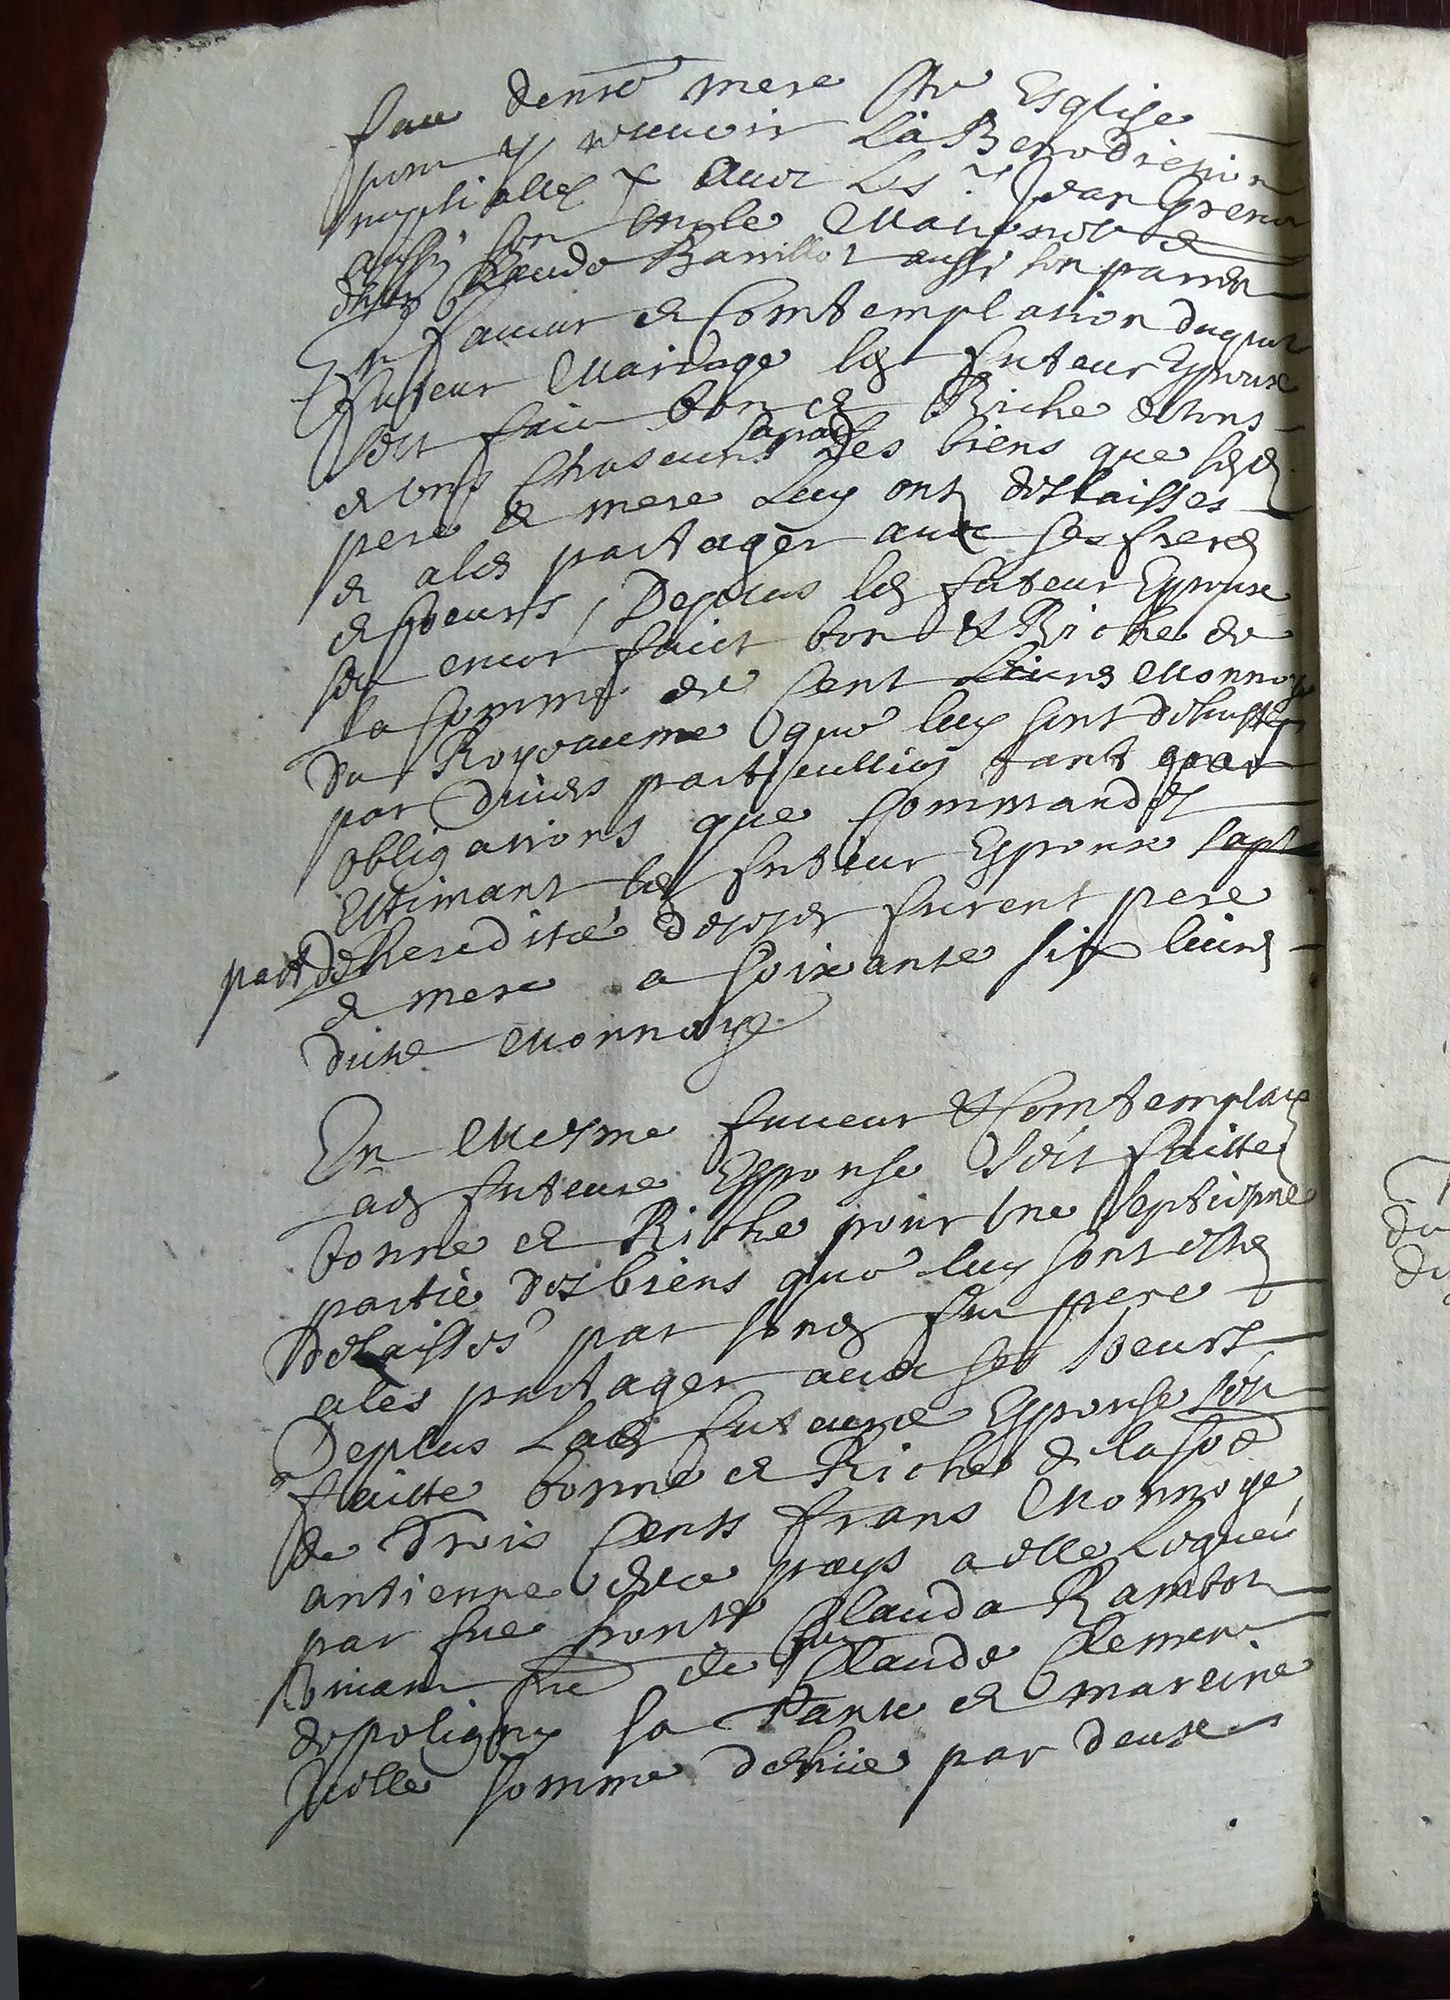 mere Ste Esglise
pour y recevoir La Benediction
nuptialle avec Le Sr Jean
aussi son oncle
Claude Barillot aussi son parrain
En faveur et Comtemplation duquel
futeur Mariage led futeur Espoux
soit fait bon et Riche
et ung Chascuns des biens que sesd
pere et mere Luy ont deslaisses
et ales partager avec ses freres
et soeurs, Deplus led futeur Espoux
soit encor faict bon et Riche de
la somme de Cent Livres Monnoye
du Royaume que luy sont
par divers particulliers tant par
obligations que Commandes
Estimant led futeur Espoux sapt
part de heredité desesd furent pere
et mere a soixante six livres
dicte Monnoye
En Mesme faveur et Comtemplaon
lad futeure Espouse soit faitte
bonne et Riche pour une septiesme
partie des biens que luy sont estes
delaisses par sond feu pere
ales partager avec ses soeurs
Deplus Lad futeure Espouse soit
faitte bonne et Riche de la some
de Trois Cents frans Monnoye
antienne de ce pays a elle Leguée
par fue honte Clauda Rambor
fue de fu Claude Clement
de poligny sa Tante et mareine
Icelle somme dehue par deux